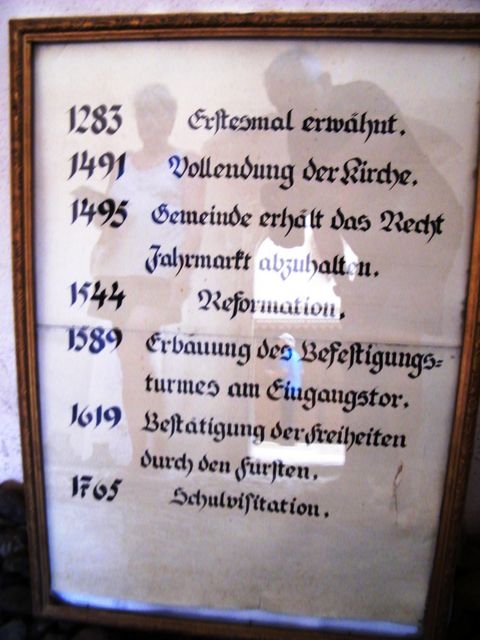 1283 Erstesmal erwähnt.
1491 Vollendung der Kirche.
1495 Gemeinde erhält das Recht
Jahrmarkt abzuhalten.
1544 Reformation.
1589 Erbauung des Befestigungs=
turmes am Eingangstor.
1619 Bestätigung der Freiheiten
durch den Fürsten.
1765 Schulvisitation.